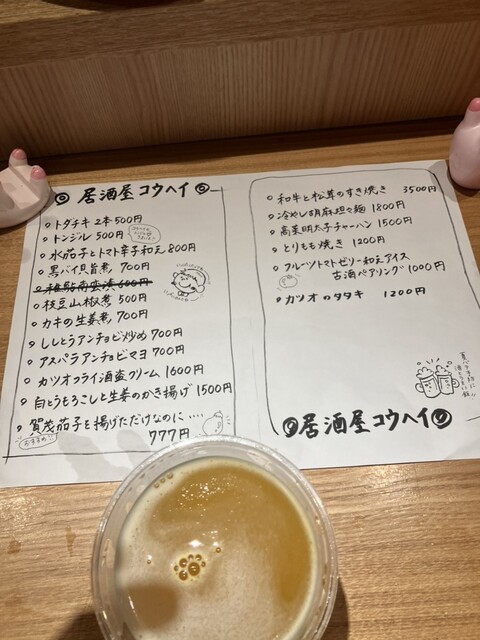 居酒屋コウヘイ
トダチキ 2本 500円
トンジル 500円
水茄子とトマト辛子和え 800円
黒バイ貝旨煮 700円
稚鮎南蛮漬 600円
枝豆山椒煮 500円
カキの生姜煮 700円
ししとうアンチョビ炒め 700円
アスパラアンチョビマヨ 700円
カツオフライ酒盗クリーム 1600円
白とうもろこしと生姜のかき揚げ 1500円
賀茂茄子を揚げただけなのに‥‥
おすすめ!
777円
和牛と松茸のすき焼き 3500円
冷やし胡麻坦々麺 1800円
高菜明太子チャーハン 1500円
とりもも焼き 1200円
フルーツトマトゼリー和えアイス
古酒ペアリング 1000円
カツオのタタキ 1200円
居酒屋コウヘイ